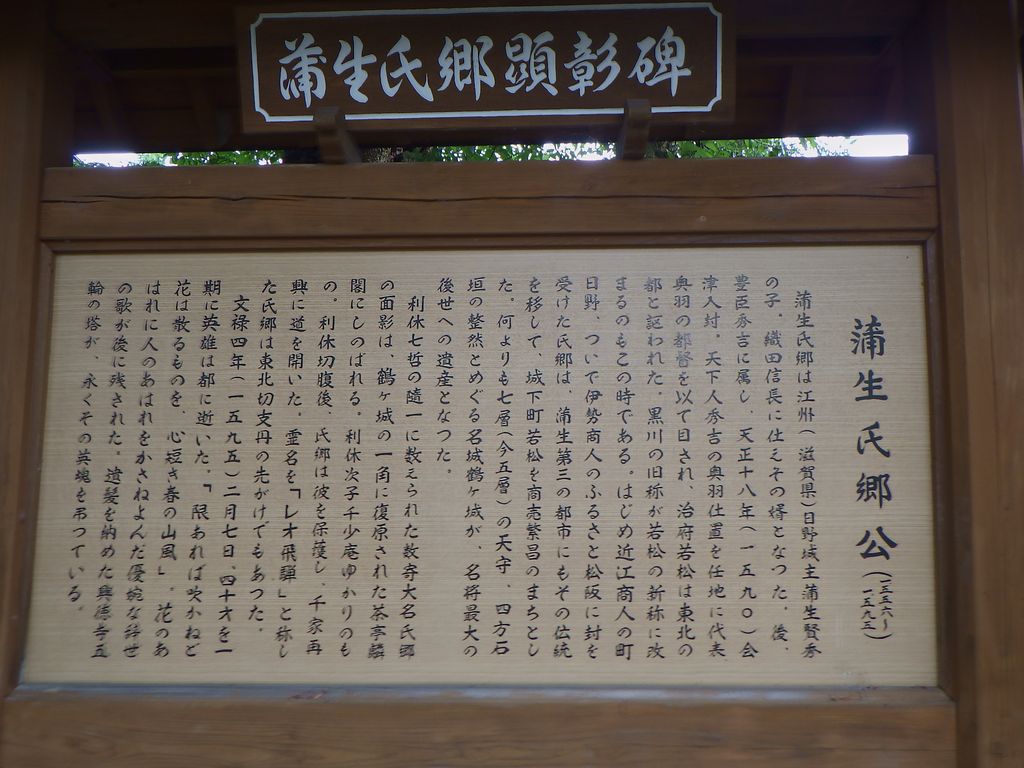 蒲生氏郷顕彰碑
蒲生氏郷公(一五五六〜一五九五)
蒲生氏郷は江州(滋賀県)日野城主蒲生賢秀
の子。織田信長に仕えその婿となつた。後、
豊臣秀吉に属し、天正十八年(一五九〇)会
津入封。天下人秀吉の奥羽仕置を任地に代表
奥羽の都督を以て目され、治府若松は東北の
都と謳われた。黒川の旧称が若松の新称に改
まるのもこの時である。はじめ近江商人の町
日野、ついで伊勢商人のふるさと松阪に封を
受けた氏郷は、蒲生第三の都市にもその伝統
を移して、城下町若松を商売繁昌のまちとし
た。何よりも七層(今五層)の天守、四方石
垣の整然とめぐる名城鶴ヶ城が、名将最大の
後世への遺産となつた。
利休七哲の隨一に数えられた数寄大名氏郷
の面影は、鶴ヶ城の一角に復原された茶亭麟
閣にしのばれる。利休次子千少庵ゆかりのも
の。利休切腹後、氏郷は彼を保護し、千家再
興に道を開いた。霊名を「レオ飛騨」と称し
た氏郷は東北切支丹の先がけでもあつた。
文禄四年(一五九五)二月七日、四十才を一
期に英雄は都に逝いた。「限あれば吹かねど
花は散るものを、心短き春の山風」。花のあ
はれに人のあはれをかさねよんだ優婉な辞世
の歌が後に残された。遺髪を納めた興徳寺五
輪の塔が、永くその英魂を弔つている。